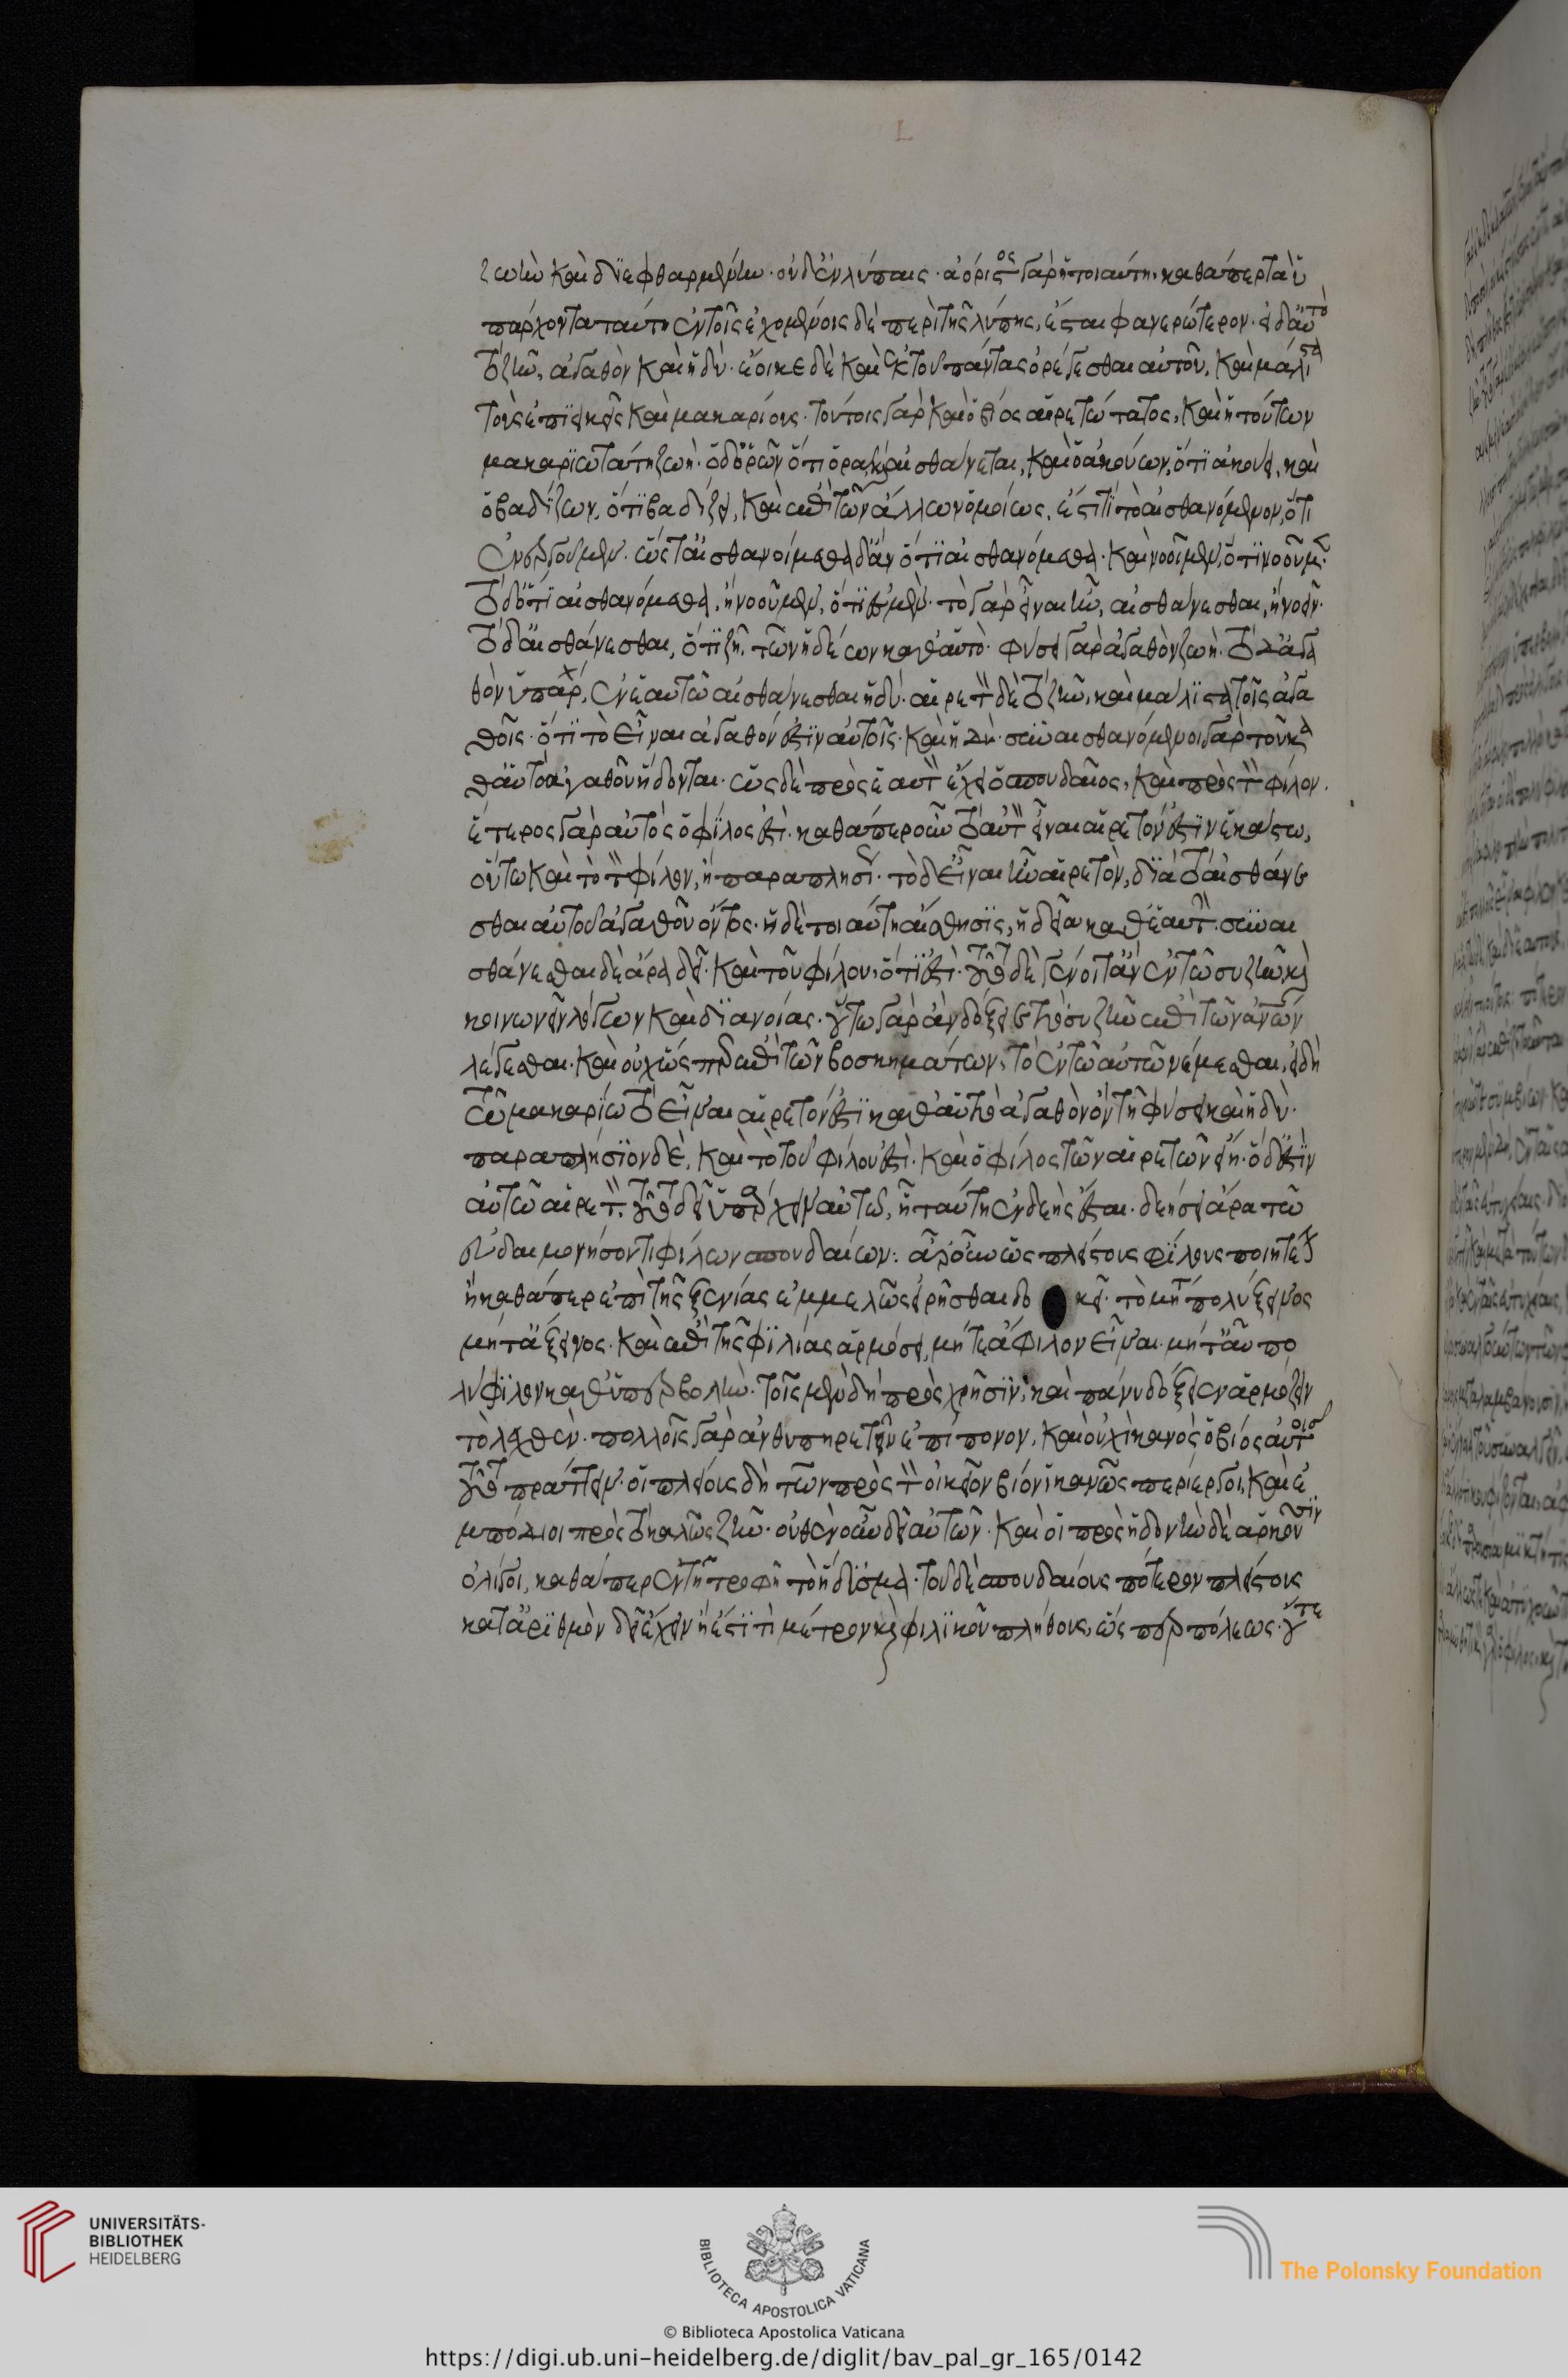 ζωὴν καὶ διεφθαρμένην· οὐδ' ἐν λύπαις· ἀόριστος γὰρ ἡ τοιαύτη, καθάπερ τὰ ὑ
πάρχοντα ταύτη ἐν τοῖς ἐχομένοις δὲ περὶ τῆς λύπης, ἔσται φανερώτερον· εἰ δ' αὐτὸ
τὸ ζῆν, ἀγαθὸν καὶ ἡδύ· ἔοικε δὲ καὶ ἐκ τοῦ πάντας ὀρέγεσθαι αὐτοῦ, καὶ μάλιστα
τοὺς ἐπιεικεῖς καὶ μακαρίους· τούτοις γὰρ καὶ ὁ βίος αἱρετώτατος, καὶ ἡ τούτων
μακαριωτάτη ζωή· ὁ δ' ὁρῶν ὅτι ὁρᾷ καὶ αἰσθάνεται, καὶ ὁ ἀκούων, ὅτι ἀκούει, καὶ
ὁ βαδίζων, ὅτι βαδίζει, καὶ ἐπὶ τῶν ἄλλων ὁμοίως, ἔστι τι τὸ αἰσθανόμενον, ὅτι
ἐνεργοῦμεν· ὥστ' αἰσθανοίμεθα δ' ἂν ὅτι αἰσθανόμεθα· καὶ νοοῖμεν, ὅτι νοοῦμεν·
τὸ δ' ὅτι αἰσθανόμεθα, ἢ νοοῦμεν, ὅτι ἐσμέν· τὸ γὰρ εἶναι ἦν, αἰσθάνεσθαι, ἢ νοεῖν·
τὸ δ' αἰσθάνεσθαι, ὅτι ζῇ, τῶν ἡδέων καθ' αὑτό· φύσει γὰρ ἀγαθὸν ζωή· τὸ δ' ἀγα
θὸν ὑπάρχ, ἐν ἑαυτῷ αἰσθάνεσθαι ἡδύ· αἱρετὸν δὲ τὸ ζῆν, καὶ μάλιστα τοῖς ἀγα
θοῖς· ὅτι τὸ εἶναι ἀγαθόν ἐστιν αὐτοῖς· καὶ ἡδύ· συναισθανόμενοι γὰρ τοῦ κα
θ' αὑτὸ ἀγαθοῦ ἥδονται· ὡς δὲ πρὸς ἑαυτὸν ἔχει ὁ σπουδαῖος, καὶ πρὸς τὸν φίλον·
ἕτερος γὰρ αὐτὸς ὁ φίλος ἐστί· καθάπερ οὖν τὸ αὐτὸν εἶναι αἱρετόν ἐστιν ἑκάστῳ,
οὕτω καὶ τὸ τὸν φίλον, ἢ παραπλησί· τὸ δ' εἶναι ἦν αἱρετὸν, διὰ τὸ αἰσθάνε
σθαι αὐτοῦ ἀγαθοῦ ὄντος· ἡ δὲ τοιαύτη αἴσθησις, ἡδεῖα καθ' ἑαυτήν· συναι
σθάνεσθαι δὲ ἄρα δεῖ· καὶ τοῦ φίλου, ὅτι ἐστί· τοῦτο δὲ γένοιτ' ἂν ἐν τῷ συζῆν καὶ
κοινωνεῖν λόγων καὶ διανοίας· οὕτω γὰρ ἂν δόξειε τὸ συζῆν ἐπὶ τῶν ἀνθρώπων
λέγεσθαι· καὶ οὐχ ὥσπερ ἐπὶ τῶν βοσκημάτων, τὸ ἐν τῷ αὐτῷ νέμεσθαι, εἰ δὴ
τῷ μακαρίῳ τὸ εἶναι αἱρετόν ἐστι καθ' αὑτὸ ἀγαθὸν ὂν τῇ φύσει καὶ ἡδύ·
παραπλήσιον δὲ, καὶ τὸ τοῦ φίλου ἐστί· καὶ ὁ φίλος τῶν αἱρετῶν εἴη· ὃ δ' ἐστὶν
αὐτῷ αἱρετόν, τοῦτο δεῖ ὑπάρχειν αὐτῷ, ἢ ταύτῃ ἐνδεὴς ἔσται· δεήσει ἄρα τῷ
εὐδαιμονήσοντι φίλων σπουδαίων: ἆρ' οὖν ὡς πλείστους φίλους ποιητέον
ἢ καθάπερ ἐπὶ τῆς ξενίας ἐμμελῶς εἰρῆσθαι δο κεῖ· τὸ μὴ πολύξεινος
μήτ' ἄξεινος· καὶ ἐπὶ τῆς φιλίας ἁρμόσει, μήτε ἄφιλον εἶναι· μήτ' αὖ πο
λύφιλον καθ' ὑπερβολήν· τοῖς μὲν δὴ πρὸς χρῆσιν, καὶ πάνυ δόξειεν ἁρμόζειν
τὸ λεχθέν· πολλοῖς γὰρ ἀνθυπηρετεῖν ἐπίπονον, καὶ οὐχ ἱκανὸς ὁ βίος αὐτοῖς
τοῦτο πράττειν· οἱ πλείους δὴ τῶν πρὸς τὸν οἰκεῖον βίον ἱκανῶς περίεργοι, καὶ ἐ
μπόδιοι πρὸς τὸ καλῶς ζῆν· οὐθὲν οὖν δεῖ αὐτῶν· καὶ οἱ πρὸς ἡδονὴν δὲ ἀρκοῦσιν
ὀλίγοι, καθάπερ ἐν τῇ τροφῇ τὸ ἥδυσμα· τοὺς δὲ σπουδαίους πότερον πλείστους
κατ' ἀριθμὸν δεῖ ἔχειν ἢ ἔστι τὶ μέτρον καὶ φιλικοῦ πλήθους, ὥσπερ πόλεως· οὔτε
UNIVERSITÄTS-
BIBLIOTHEK
HEIDELBERG
BIBLIOTECA APOSTOLICA VATICANA
The Polonsky Foundation
© Biblioteca Apostolica Vaticana
https://digi.ub.uni-heidelberg.de/diglit/bav_pal_gr_165/0142